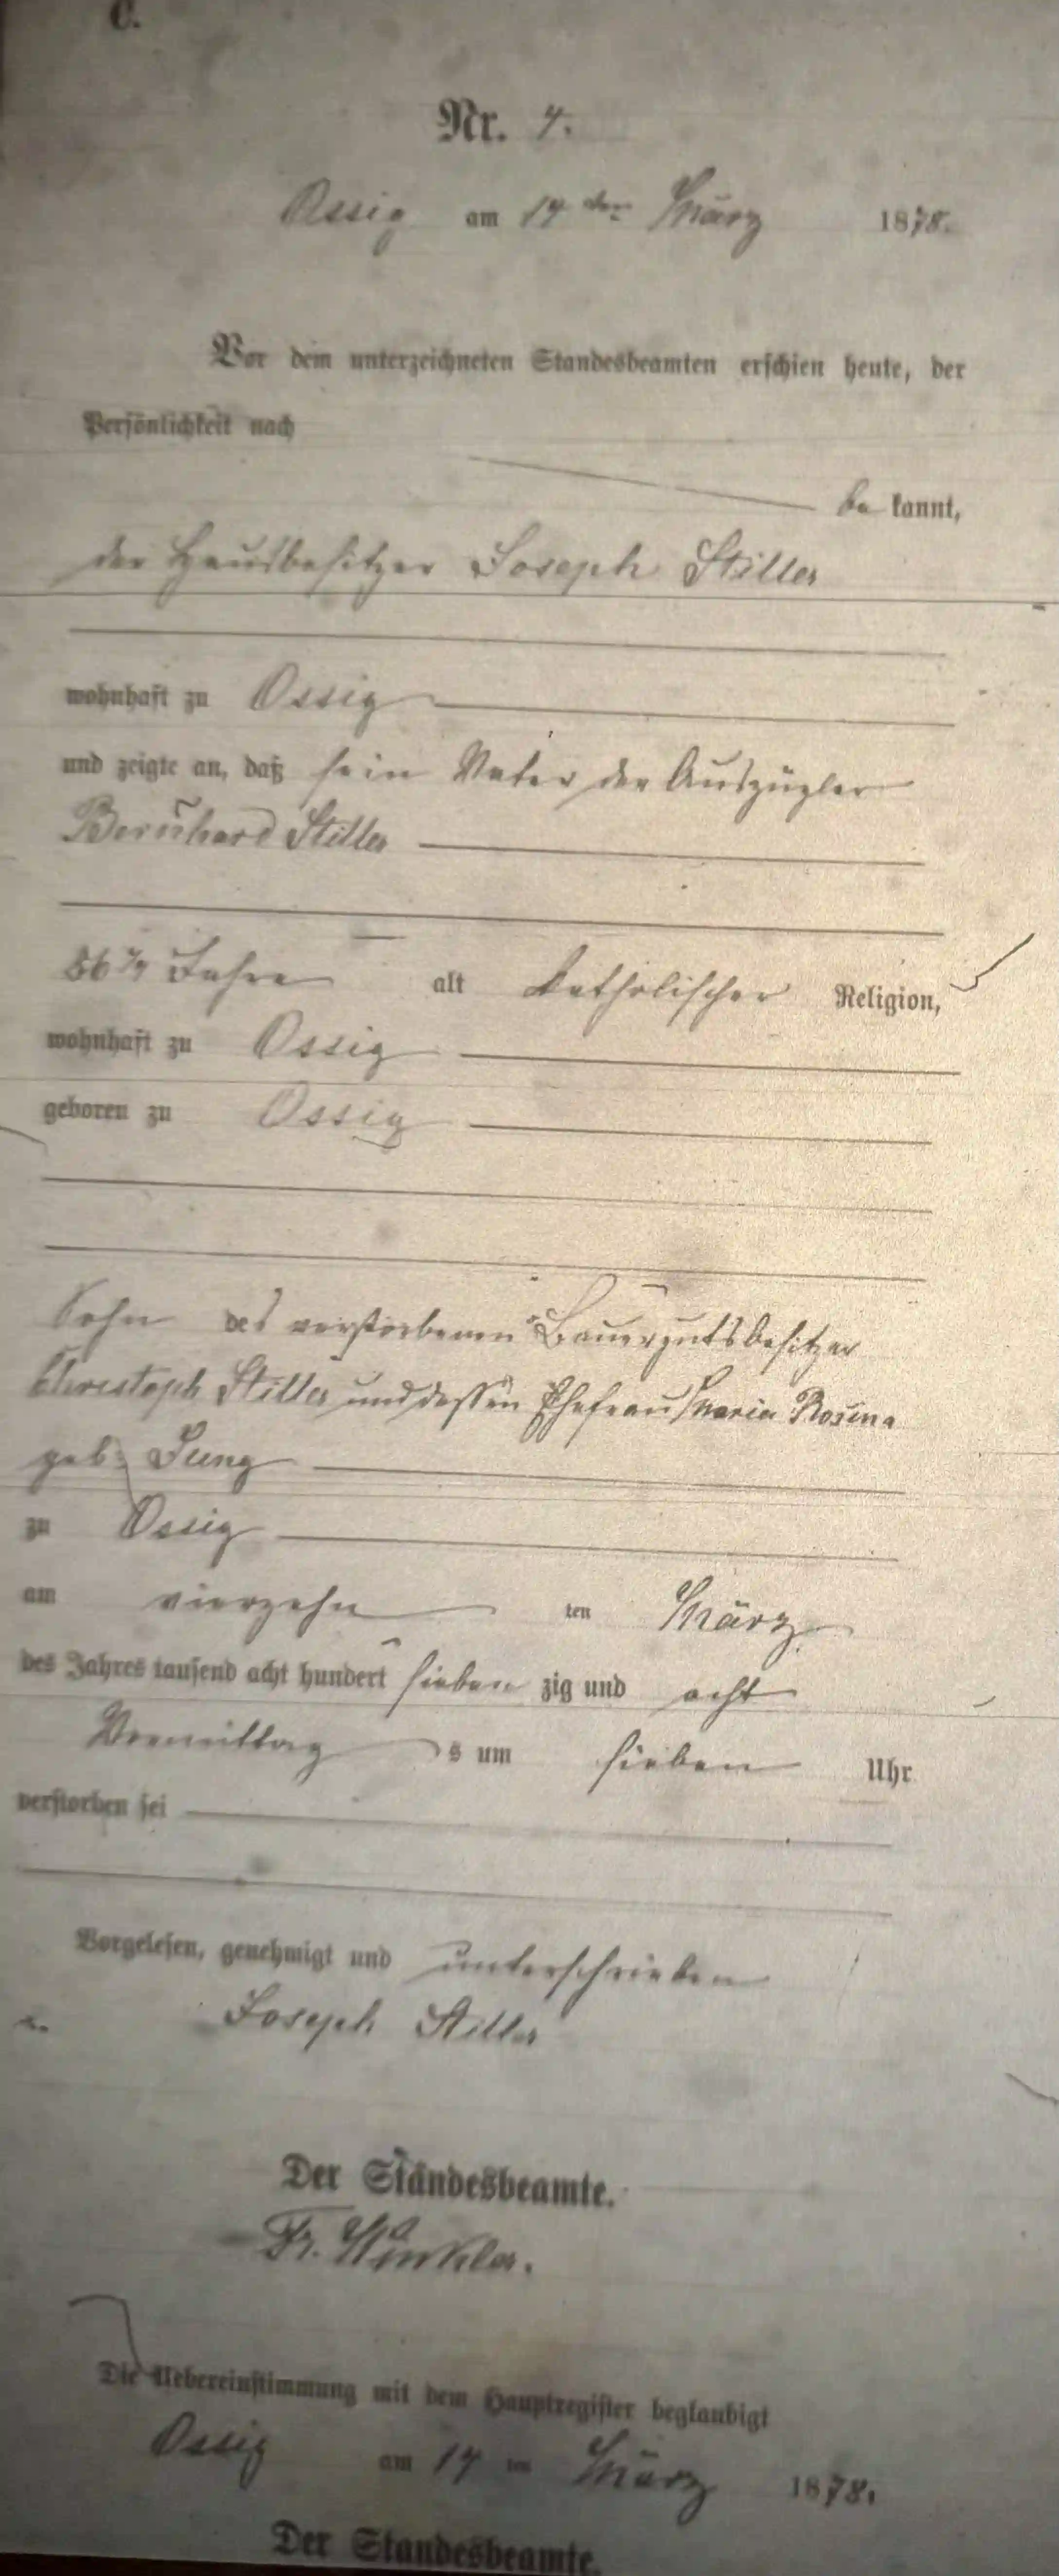 C.
Nr. 4.
Ossig am 14ten März 1878.
Vor dem unterzeichneten Standesbeamten erschien heute, der
Persönlichkeit nach
be kannt,
der Hausbesitzer Joseph Stiller
wohnhaft zu Ossig
und zeigte an, daß sein Vater der Auszügler
Bernhard Stiller
Jahre alt katholischer Religion,
wohnhaft zu Ossig
geboren zu Ossig
Sohn des verstorbenen Bauergutsbesitzer
Christoph Stiller und dessen Ehefrau Maria Rosina
geb. Jung
zu Ossig
am vierzehn ten März
des Jahres tausend acht hundert sieben zig und acht
Vormittag s um sieben Uhr
verstorben sei
Vorgelesen, genehmigt und unterschrieben
Joseph Stiller
Der Standesbeamte.
Fr. Winkler.
Die Uebereinstimmung mit dem Hauptregister beglaubigt
Ossig am 14 ten März 1878.
Der Standesbeamte.